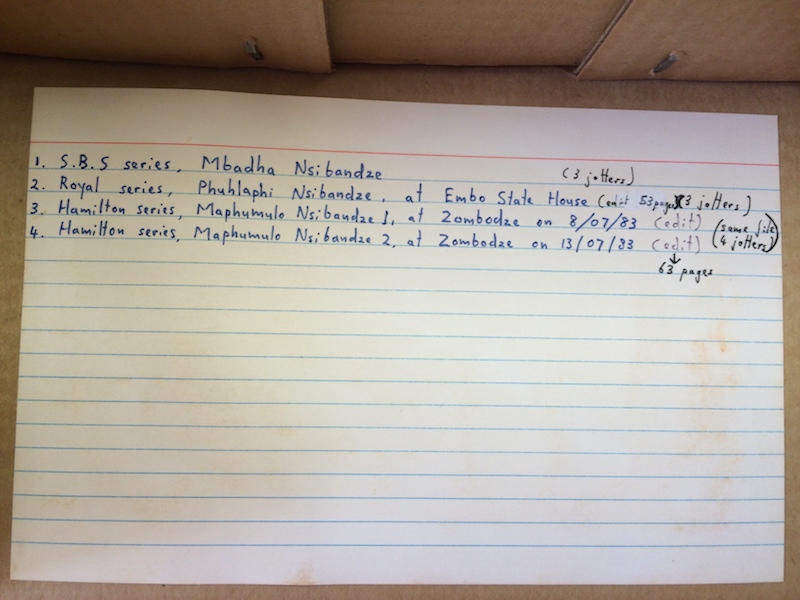 1. S.B.S series, Mbadha Nsibandze (3 jotters)
2. Royal series, Phuhlaphi Nsibandze, at Embo State House (edit 53 pages)(3 jotters)
3. Hamilton series, Maphumulo Nsibandze 1, at Zombodze on 8/07/83 (edit) (same file
4. Hamilton series, Maphumulo Nsibandze 2, at Zombodze on 13/07/83 (edit) 4 jotters)
63 pages